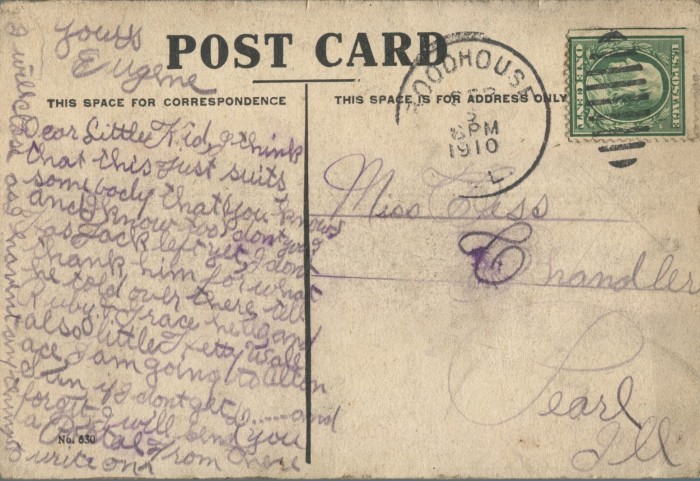 yours
Eugene
POST CARD
THIS SPACE FOR CORRESPONDENCE
THIS SPACE IS FOR ADDRESS ONLY
ROODHOUSE
SEP
3
8 PM
1910
ILL.
U.S. POSTAGE
ONE CENT
Dear Little Kid, I think
that this just suits
somebody that you know
and I know too don't you
has Jack left yet, I don't
thank him for what
he told over there till
Ruby & Grace hello and
also little Letty Wall
ace I am going to Alton
Sun if I dont get D----- and
forget I will send you
a Postal from there
I will close as I havent anything
to write on
Miss Tess
Chandler
Pearl
Ill
No. 630